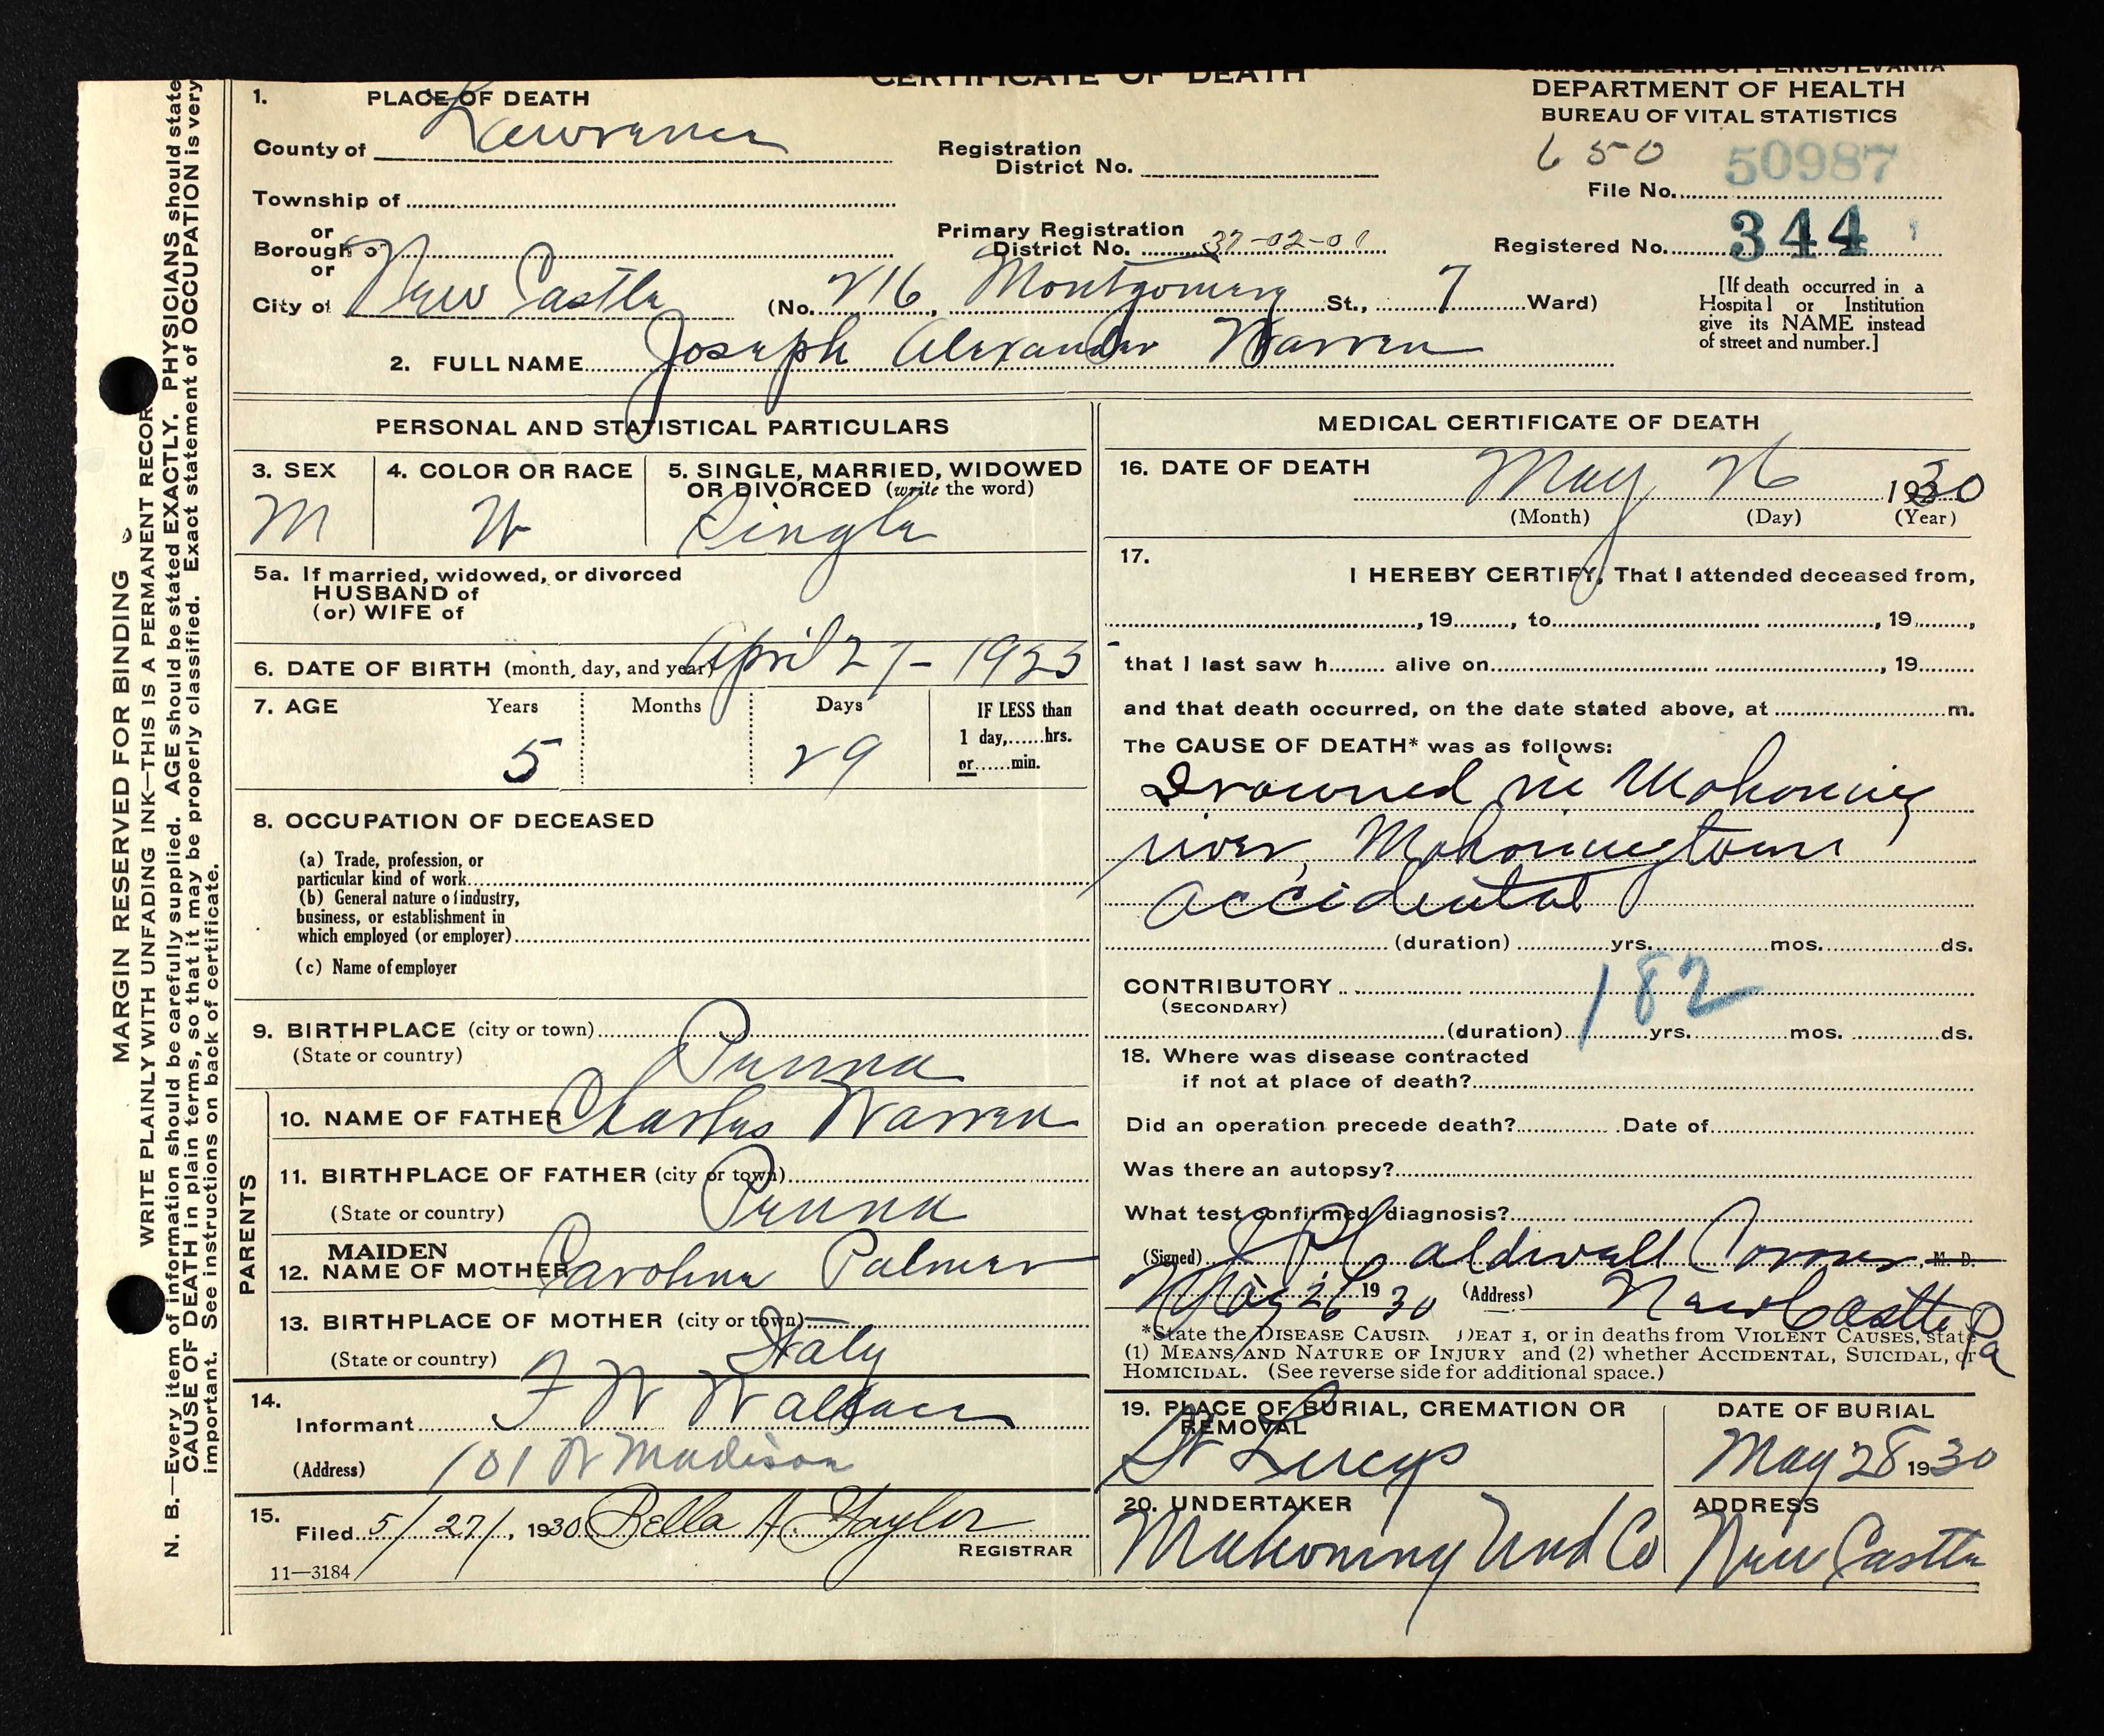 CERTIFICATE OF DEATH
COMMONWEALTH OF PENNSYLVANIA
DEPARTMENT OF HEALTH
BUREAU OF VITAL STATISTICS
1. PLACE OF DEATH
County of Lawrence
Registration District No.
650 50987
File No.
Township of
or
Borough of
Primary Registration District No. 37-02-01
Registered No. 344
or
City of New Castle (No. 216, Montgomery St., 7 Ward)
[If death occurred in a Hospital or Institution give its NAME instead of street and number.]
2. FULL NAME Joseph Alexander Warren
PERSONAL AND STATISTICAL PARTICULARS
3. SEX
M
4. COLOR OR RACE
W
5. SINGLE, MARRIED, WIDOWED OR DIVORCED (write the word)
Single
5a. If married, widowed, or divorced
HUSBAND of
(or) WIFE of
6. DATE OF BIRTH (month, day, and year) April 27 - 1925
7. AGE Years Months Days IF LESS than
1 day,......hrs.
or......min.
5 29
8. OCCUPATION OF DECEASED
(a) Trade, profession, or
particular kind of work
(b) General nature of industry,
business, or establishment in
which employed (or employer)
(c) Name of employer
9. BIRTHPLACE (city or town)
(State or country) Penna
PARENTS
10. NAME OF FATHER Charles Warren
11. BIRTHPLACE OF FATHER (city or town)
(State or country) Penna
12. MAIDEN NAME OF MOTHER Caroline Palmer
13. BIRTHPLACE OF MOTHER (city or town)
(State or country) Italy
14.
Informant F W Wallace
(Address) 101 W Madison
15.
Filed 5/27/, 1930 Bella A. Taylor
REGISTRAR
11—3184
MEDICAL CERTIFICATE OF DEATH
16. DATE OF DEATH
May 26 1930
(Month) (Day) (Year)
17.
I HEREBY CERTIFY, That I attended deceased from,
, 19......, to......, 19......,
that I last saw h...... alive on......, 19......
and that death occurred, on the date stated above, at......m.
The CAUSE OF DEATH* was as follows:
Drowned in Mahoning
river, Mahoningtown
accidental
(duration)......yrs.......mos.......ds.
CONTRIBUTORY
(SECONDARY)
182
(duration)......yrs.......mos.......ds.
18. Where was disease contracted
if not at place of death?
Did an operation precede death? Date of
Was there an autopsy?
What test confirmed diagnosis?
(Signed) J P Caldwell Coroner, M. D.
May 26 1930 (Address) New Castle Pa
*State the DISEASE CAUSING DEATH, or in deaths from VIOLENT CAUSES, state
(1) MEANS AND NATURE OF INJURY and (2) whether ACCIDENTAL, SUICIDAL, or
HOMICIDAL. (See reverse side for additional space.)
19. PLACE OF BURIAL, CREMATION OR REMOVAL
St Lucys
DATE OF BURIAL
May 28 1930
20. UNDERTAKER
Mahoning Und Co
ADDRESS
New Castle
MARGIN RESERVED FOR BINDING
WRITE PLAINLY WITH UNFADING INK—THIS IS A PERMANENT RECORD
N. B.—Every item of information should be carefully supplied. AGE should be stated EXACTLY. PHYSICIANS should state
CAUSE OF DEATH in plain terms, so that it may be properly classified. Exact statement of OCCUPATION is very
important. See instructions on back of certificate.